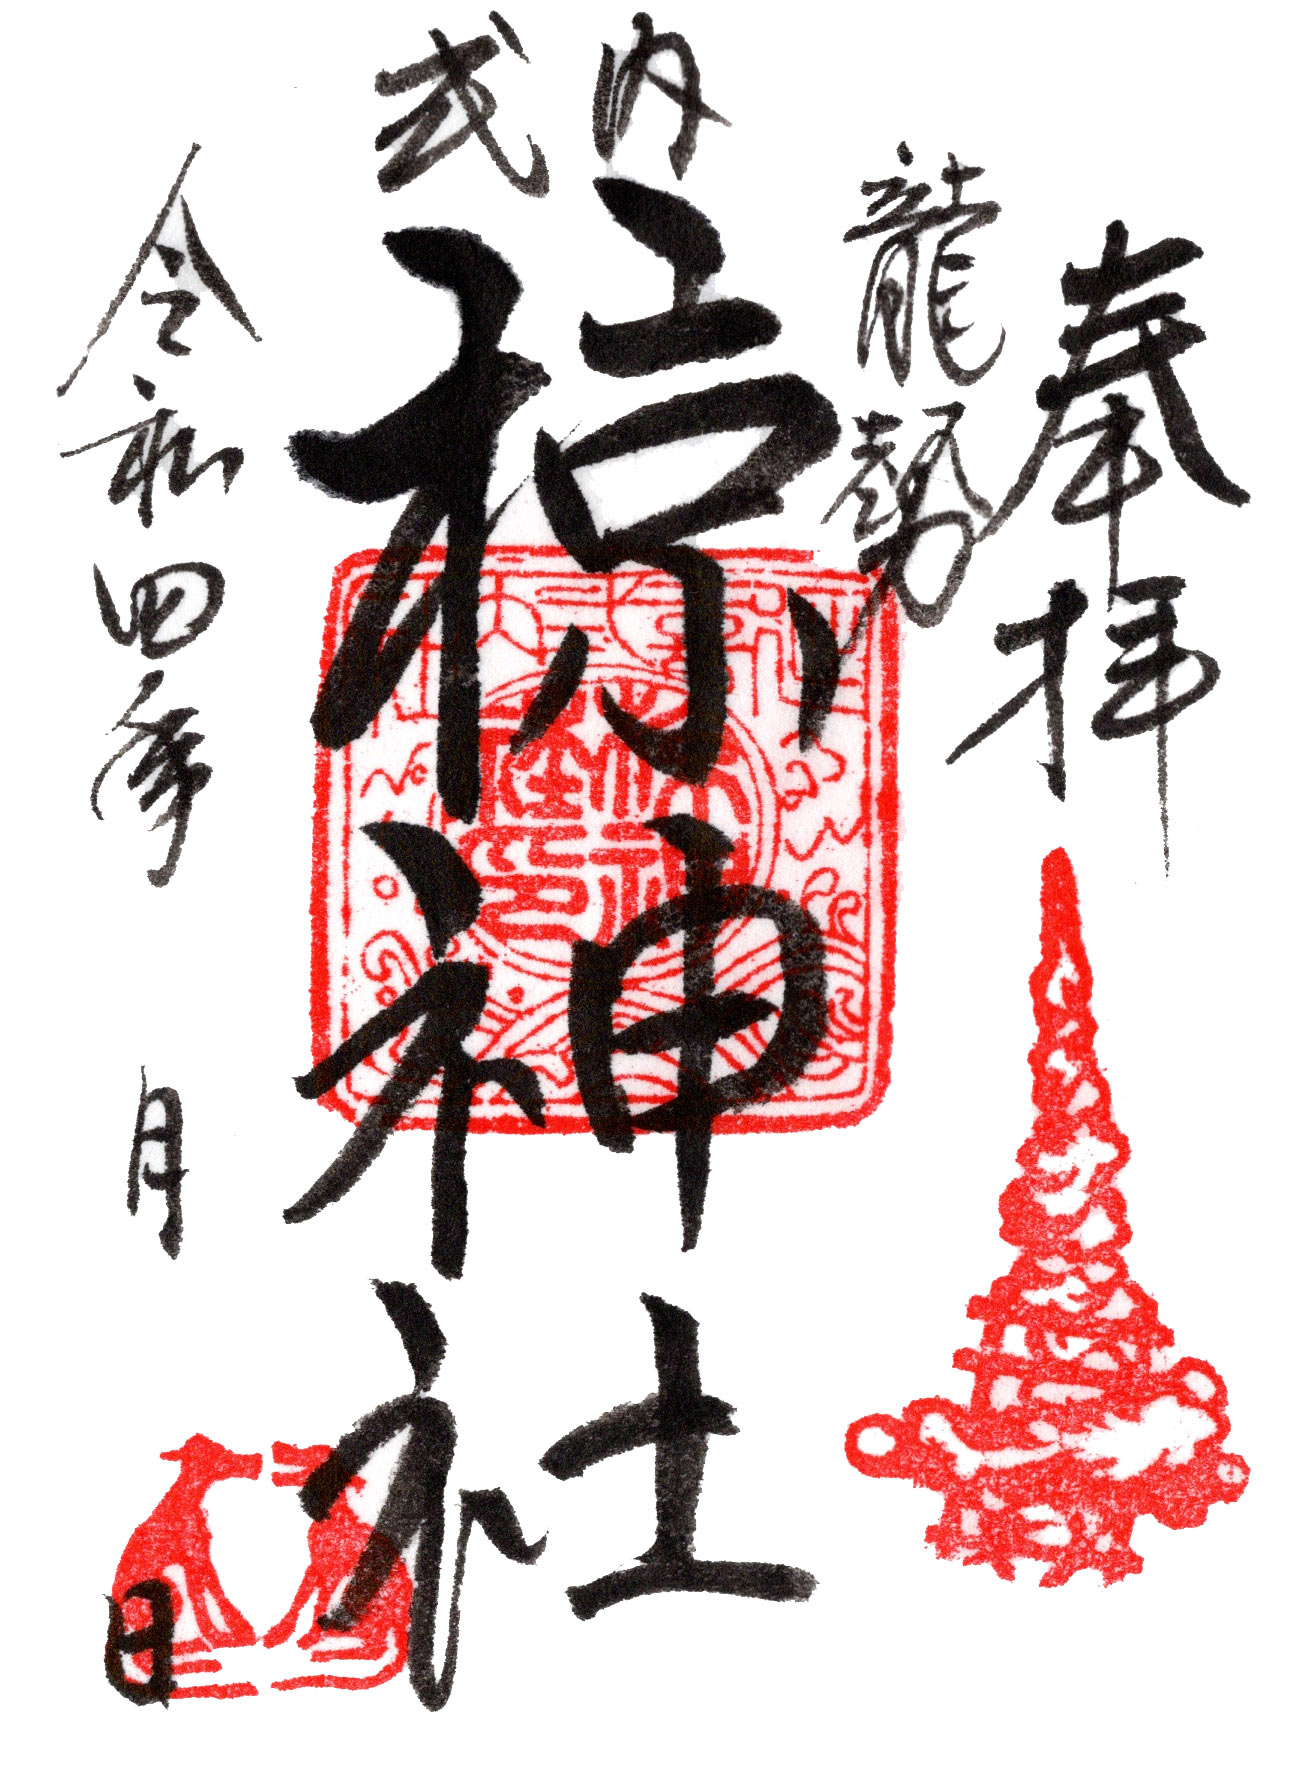 奉拝
龍勢
式内
椋神社
令和四年 月 日